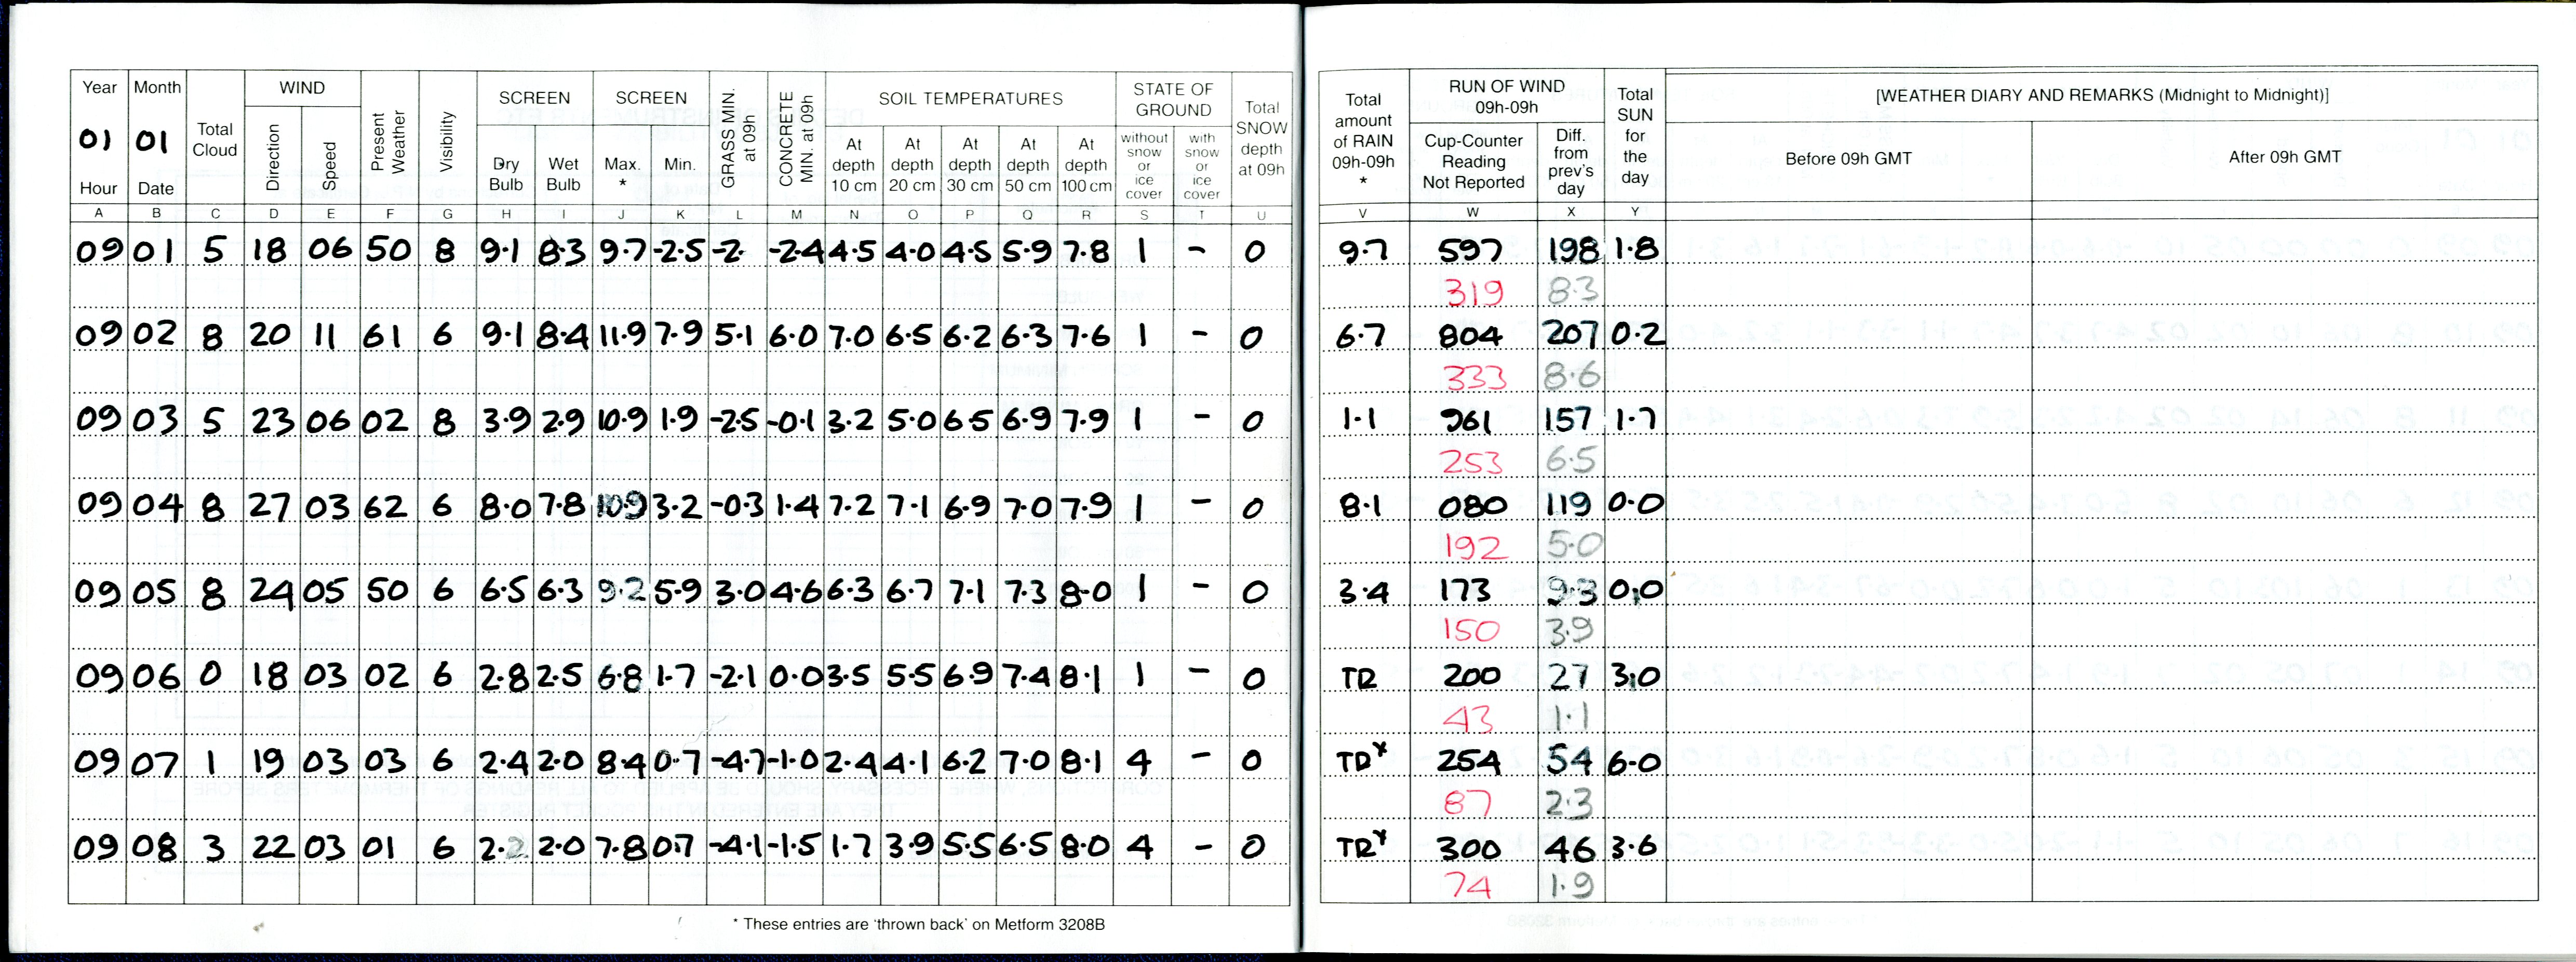 Year Month Total Cloud WIND Present Weather Visibility SCREEN SCREEN GRASS MIN. at 09h CONCRETE MIN. at 09h SOIL TEMPERATURES STATE OF GROUND Total SNOW depth at 09h Total amount of RAIN 09h-09h * RUN OF WIND 09h-09h Total SUN for the day [WEATHER DIARY AND REMARKS (Midnight to Midnight)]
01 01 Direction Speed Dry Bulb Wet Bulb Max. * Min. At depth 10 cm At depth 20 cm At depth 30 cm At depth 50 cm At depth 100 cm without snow or ice cover with snow or ice cover Cup-Counter Reading Not Reported Diff. from prev's day Before 09h GMT After 09h GMT
Hour Date
A B C D E F G H I J K L M N O P Q R S T U V W X Y
09 01 5 18 06 50 8 9.1 8.3 9.7 -2.5 -2. -2.4 4.5 4.0 4.5 5.9 7.8 1 - 0 9.7 597 198 1.8
319 8.3
09 02 8 20 11 61 6 9.1 8.4 11.9 7.9 5.1 6.0 7.0 6.5 6.2 6.3 7.6 1 - 0 6.7 804 207 0.2
333 8.6
09 03 5 23 06 02 8 3.9 2.9 10.9 1.9 -2.5 -0.1 3.2 5.0 6.5 6.9 7.9 1 - 0 1.1 961 157 1.7
253 6.5
09 04 8 27 03 62 6 8.0 7.8 10.9 3.2 -0.3 1.4 7.2 7.1 6.9 7.0 7.9 1 - 0 8.1 080 119 0.0
192 5.0
09 05 8 24 05 50 6 6.5 6.3 9.2 5.9 3.0 4.6 6.3 6.7 7.1 7.3 8.0 1 - 0 3.4 173 9.3 0.0
150 3.9
09 06 0 18 03 02 6 2.8 2.5 6.8 1.7 -2.1 0.0 3.5 5.5 6.9 7.4 8.1 1 - 0 TR 200 27 3.0
43 1.1
09 07 1 19 03 03 6 2.4 2.0 8.4 0.7 -4.7 -1.0 2.4 4.1 6.2 7.0 8.1 4 - 0 TR* 254 54 6.0
87 2.3
09 08 3 22 03 01 6 2.2 2.0 7.8 0.7 -4.1 -1.5 1.7 3.9 5.5 6.5 8.0 4 - 0 TR* 300 46 3.6
74 1.9
* These entries are 'thrown back' on Metform 3208B